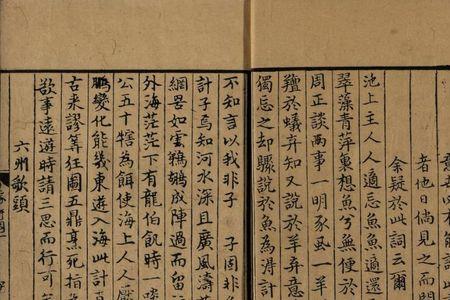 者他日倘見之而問
余疑於此詞云爾
池上主人人適忘魚魚適還
翠藻青萍裏想魚兮無便於
周正談兩事一明豕虱一羊
羶於蟻弃知又說於羊弃意
獨忘之却驟說於魚為得計
不知言以我非子 子固非
計子焉知河水深且廣風濤
網罟如雲鵜鶘成陣過而留
外海茫茫下有龍伯飢時一
公五十犗為餌使海上人人厭
鵬變化能幾東遊入海此計
古来謬筭狂圖五鼎烹死指
欲事遠遊時請三思而行可
六州歌頭